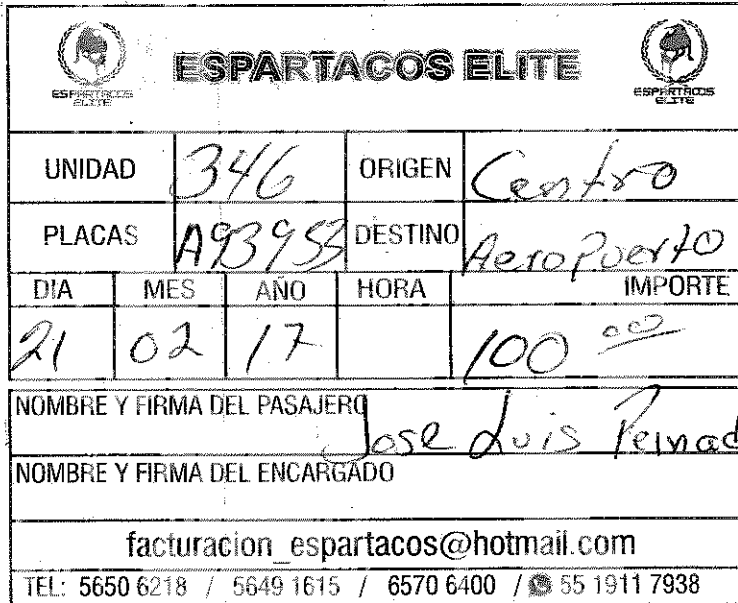 ESPARTACOS ELITE
ESPARTACOS ELITE
ESPARTACOS ELITE
UNIDAD 346 ORIGEN Centro
PLACAS A93953 DESTINO AeroPuerto
DIA MES AÑO HORA IMPORTE
21 02 17 100 00
NOMBRE Y FIRMA DEL PASAJERO Jose Luis Peinad
NOMBRE Y FIRMA DEL ENCARGADO
facturacion_espartacos@hotmail.com
TEL: 5650 6218 / 5649 1615 / 6570 6400 / 55 1911 7938